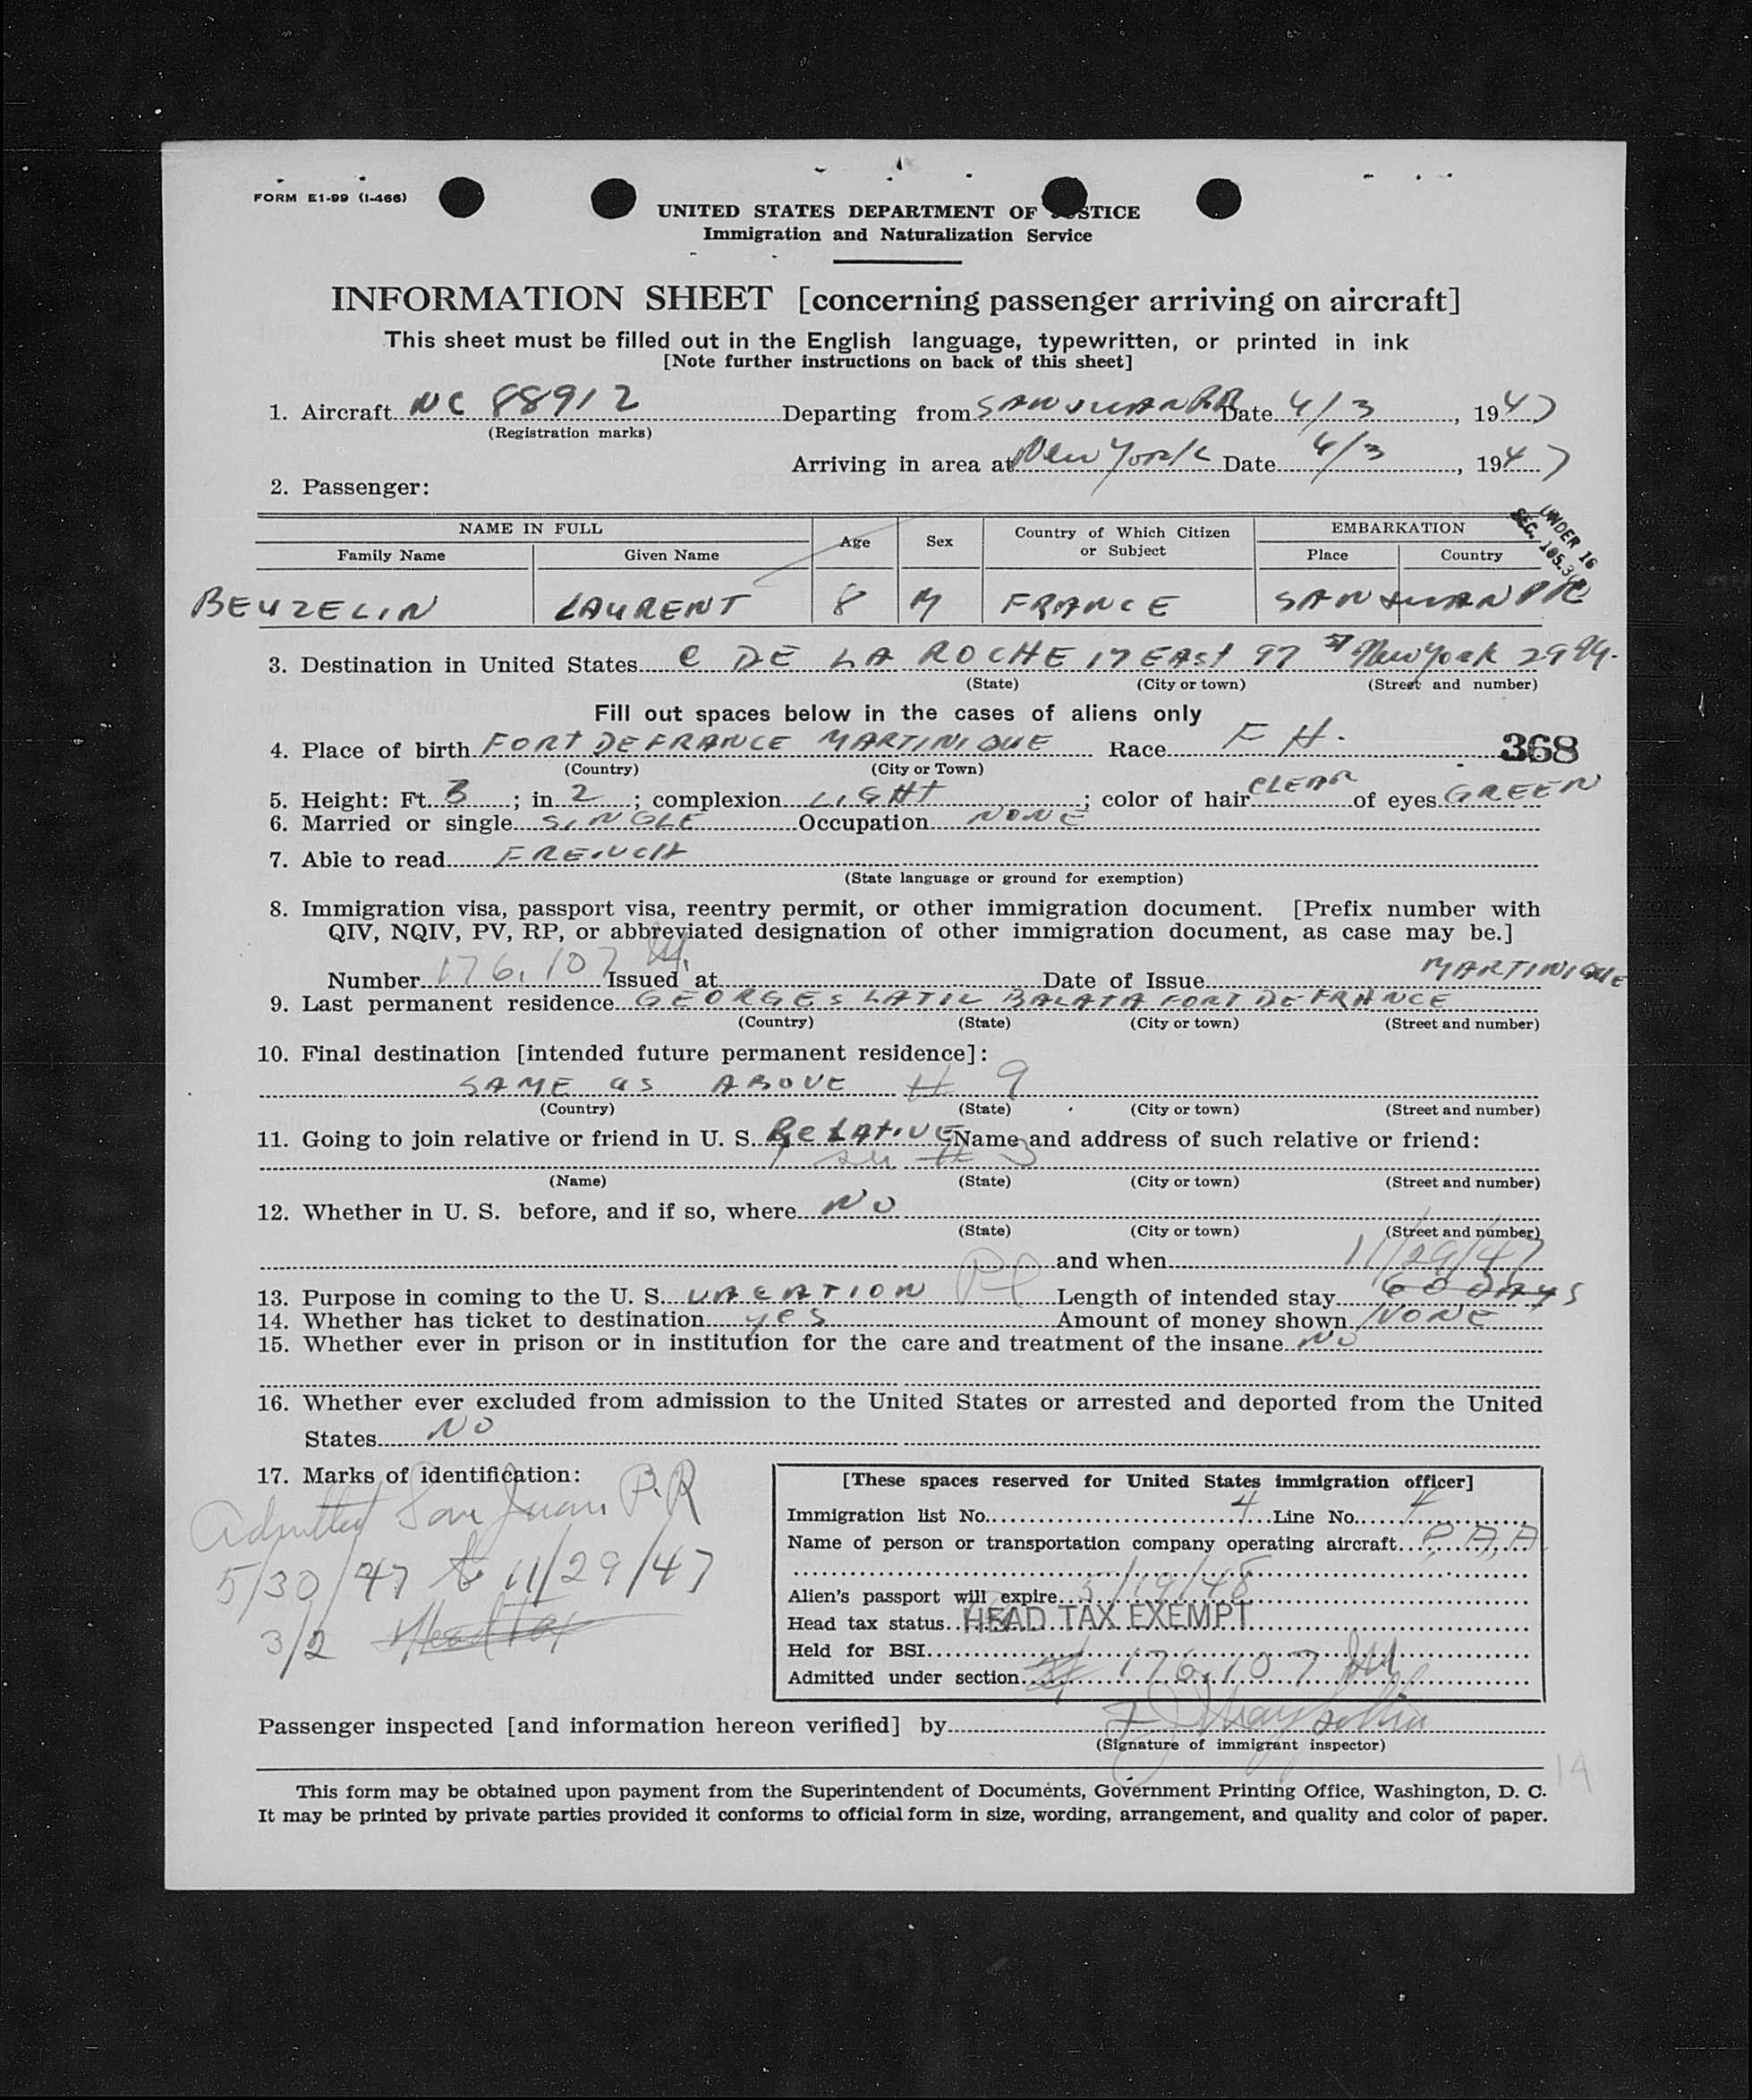 FORM E1-99 (I-466)
UNITED STATES DEPARTMENT OF JUSTICE
Immigration and Naturalization Service
INFORMATION SHEET [concerning passenger arriving on aircraft]
This sheet must be filled out in the English language, typewritten, or printed in ink
[Note further instructions on back of this sheet]
1. Aircraft NC 88912 Departing from SAN JUAN PR Date 6/3, 1947
(Registration marks)
Arriving in area at New York Date 6/3, 1947
2. Passenger:
NAME IN FULL Age Sex Country of Which Citizen or Subject EMBARKATION
Family Name Given Name Place Country
UNDER 16
SEC. 105.3
BEUZELIN LAURENT 8 M FRANCE SAN JUAN PR
3. Destination in United States C DE LA ROCHE 17 EAST 97 ST New York 29 NY.
(State) (City or town) (Street and number)
Fill out spaces below in the cases of aliens only
4. Place of birth FORT DE FRANCE MARTINIQUE Race F H. 368
(Country) (City or Town)
5. Height: Ft. 3; in 2; complexion LIGHT; color of hair CLEAR of eyes GREEN
6. Married or single SINGLE Occupation NONE
7. Able to read FRENCH
(State language or ground for exemption)
8. Immigration visa, passport visa, reentry permit, or other immigration document. [Prefix number with
QIV, NQIV, PV, RP, or abbreviated designation of other immigration document, as case may be.]
Number 176.107 Issued at Date of Issue MARTINIQUE
9. Last permanent residence GEORGES LATIL BALATA FORT DE FRANCE
(Country) (State) (City or town) (Street and number)
10. Final destination [intended future permanent residence]:
SAME as ABOVE # 9
(Country) (State) (City or town) (Street and number)
11. Going to join relative or friend in U. S. RELATIVE Name and address of such relative or friend:
# 3
(Name) (State) (City or town) (Street and number)
12. Whether in U. S. before, and if so, where NO
(State) (City or town) (Street and number)
and when 11/29/47
13. Purpose in coming to the U. S. VACATION Length of intended stay 60 DAYS
14. Whether has ticket to destination yes Amount of money shown NONE
15. Whether ever in prison or in institution for the care and treatment of the insane NO
16. Whether ever excluded from admission to the United States or arrested and deported from the United
States NO
17. Marks of identification:
Admitted San Juan P.R
5/30/47 to 11/29/47
3/2 Head Tax
[These spaces reserved for United States immigration officer]
Immigration list No. 4 Line No. 4
Name of person or transportation company operating aircraft P.A.A
Alien's passport will expire 5/19/48
Head tax status HEAD TAX EXEMPT
Held for BSI
Admitted under section 176.107
Passenger inspected [and information hereon verified] by
(Signature of immigrant inspector)
14
This form may be obtained upon payment from the Superintendent of Documents, Government Printing Office, Washington, D. C.
It may be printed by private parties provided it conforms to official form in size, wording, arrangement, and quality and color of paper.